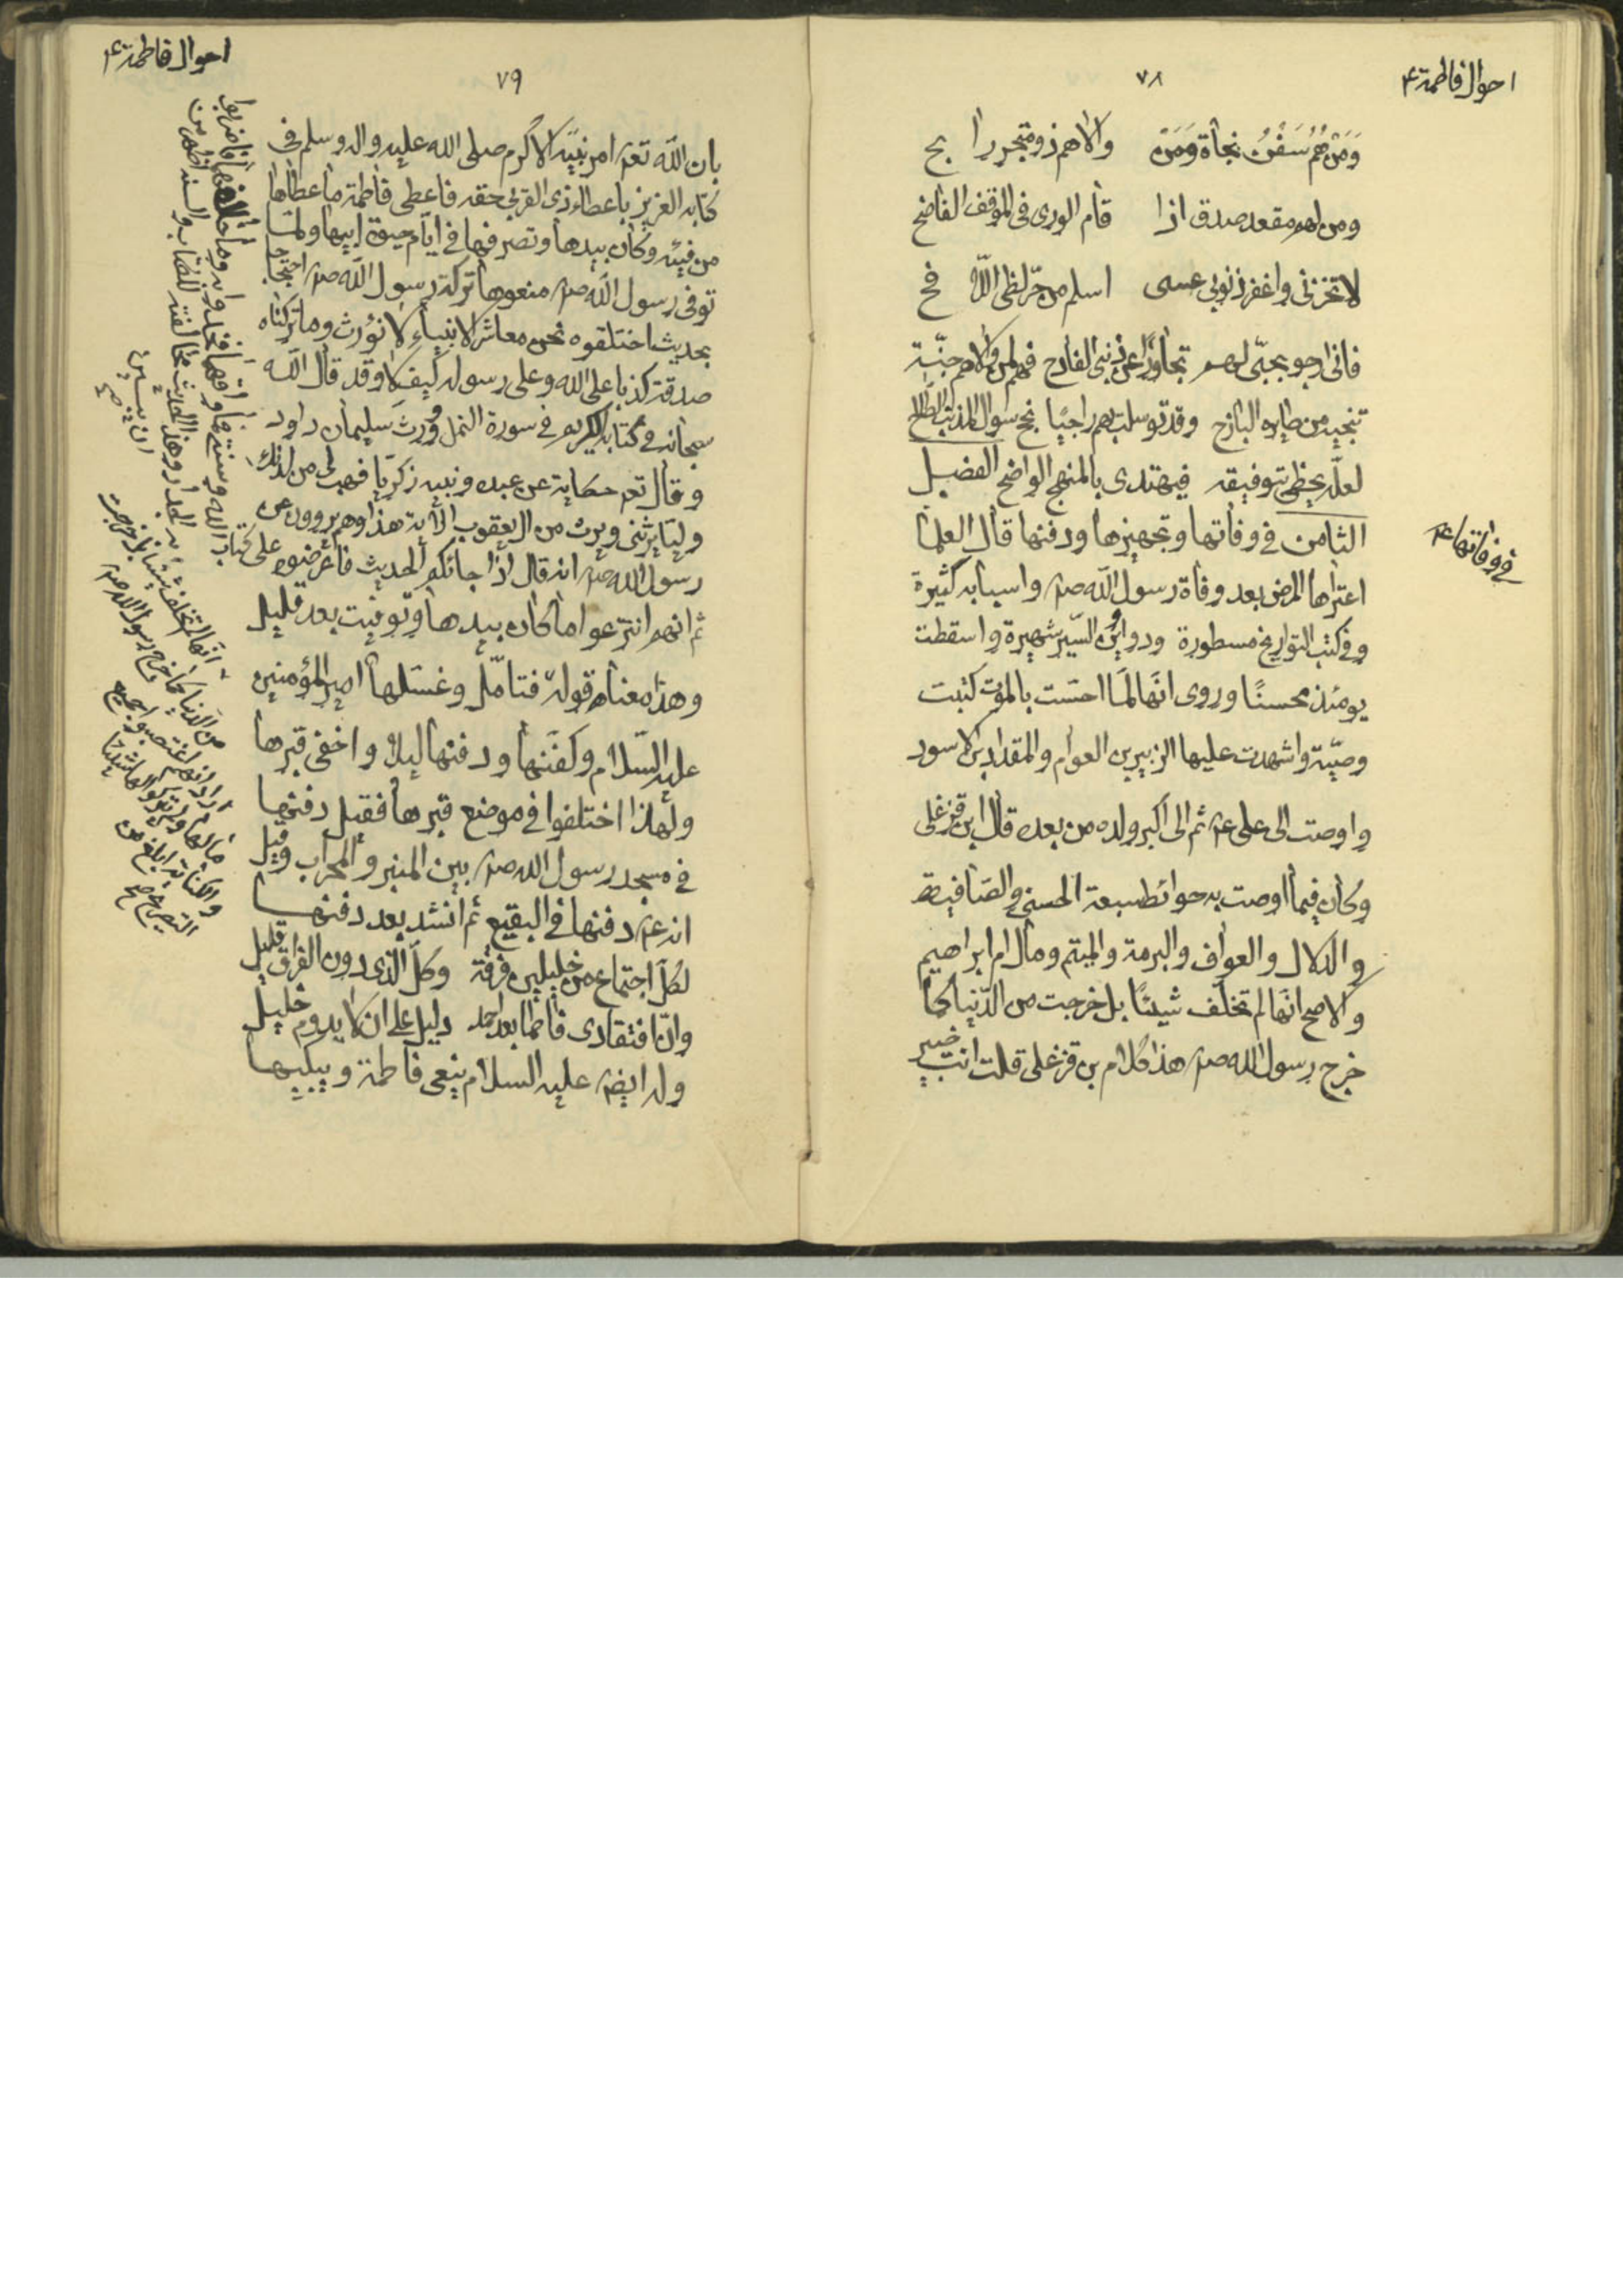 احوال فاطمة ع
٧٨
وَمَن هُم سُفُنُ نجاة وَمَن والاهم ذو متجر رابح
ومن لهم مقعد صدق اذا قام الورى في الموقف الفاضح
لا تخزني واغفر ذنوبي عسى اسلم من حرّ لظى اللافح
فاني ارجو بحبّي لهم تجاوزا عن ذنبي الفادح فهم لمن والاهم جنّة
تنجيه من طايره البارح وقد توسلت بهم راجيًا نجح سوال المذنب الطالح
لعلّه يحظى بتوفيقه فيهتدى بالمنهج الواضح الفصيل
الثامن في وفاتها وتجهيزها ودفنها قال العلما
في وفاتها ع
اعتراها المرض بعد وفاة رسول الله ص واسبابه كثيرة
وفي كتب التواريخ مسطورة ودواين السّير شهيرة واسقطت
يومئذ محسنًا وروى انّها لمّا احسّت بالموت كتبت
وصيّة واشهدت عليها الزبير بن العوام والمقداد بن الاسود
واوصت الى على ع ثم الى اكبر ولده من بعده قال ابن قزغلى
وكان فيما اوصت به حوائط سبعة الحسنى والصافية
والدلال والعواف والبرمة والميثم ومال ام ابراهيم
والاصح انّها لم تخلّف شيئًا بل خرجت من الدّنيا كما
خرج رسول الله ص هذا كلام بن قزغلى قلت انت خبير
احوال فاطمة ع
٧٩
بان الله تع امر نبيّه الاكرم صلى الله عليه واله وسلم في
كتابه العزيز باعطاء ذى القربى حقه فاعطى فاطمة ما اعطاها
من فيئه وكان بيدها وتصرفها في ايّام حيوة ابيها ولمّا
توفى رسول الله ص منعوها تركة رسول الله ص احتجاجا
بحديث اختلقوه نحن معاشر الانبياء لا نُورث وما تركناه
صدقة كذبا على الله وعلى رسوله كيف لا وقد قال الله
سبحانه في كتابه الكريم في سورة النمل وورث سليمان داود
وقال تع حكاية عن عبده ونبيه زكريّا فهب لى من لدنك
وليّا يرثنى ويرث من ال يعقوب الاية هذا وهم يروون عن
رسول الله ص انه قال اذا جائكم الحديث فاعرضوه على كتاب الله وسنتى فما وافقهما فخذوا به وما خالفهما فاضربوا
به الجدار وهذا الحديث مخالفته للكتاب والسنة اظهر من
ان يبين صح
ثم انهم انتزعوا ما كان بيدها وتوفيت بعد قليل
وهذا معنى قوله فتامّل وغسّلها امير المؤمنين
عليه السّلام وكفّنها ودفنها ليلا واخفى قبرها
ولهذا اختلفوا في موضع قبرها فقيل دفنها
في مسجد رسول الله ص بين المنبر والمحراب وقيل
انه ع دفنها في البقيع ثم انشد بعد دفنها
لكلّ اجتماع من خليلين فرقة وكلّ الّذى دون الفراق قليل
وانّ افتقادى فاطما بعد احمد دليل على ان لا يدوم خليل
وله ايض عليه السلام ينعى فاطمة ويبكيها
انّها لم تخلّف شيئا بل خرجت
من الدّنيا كما خرج رسول الله ص
اراد انهم غصبوا جميع
مالها ولم يتركوا لها شيئا
والكناية ابلغ من
التصريح صح